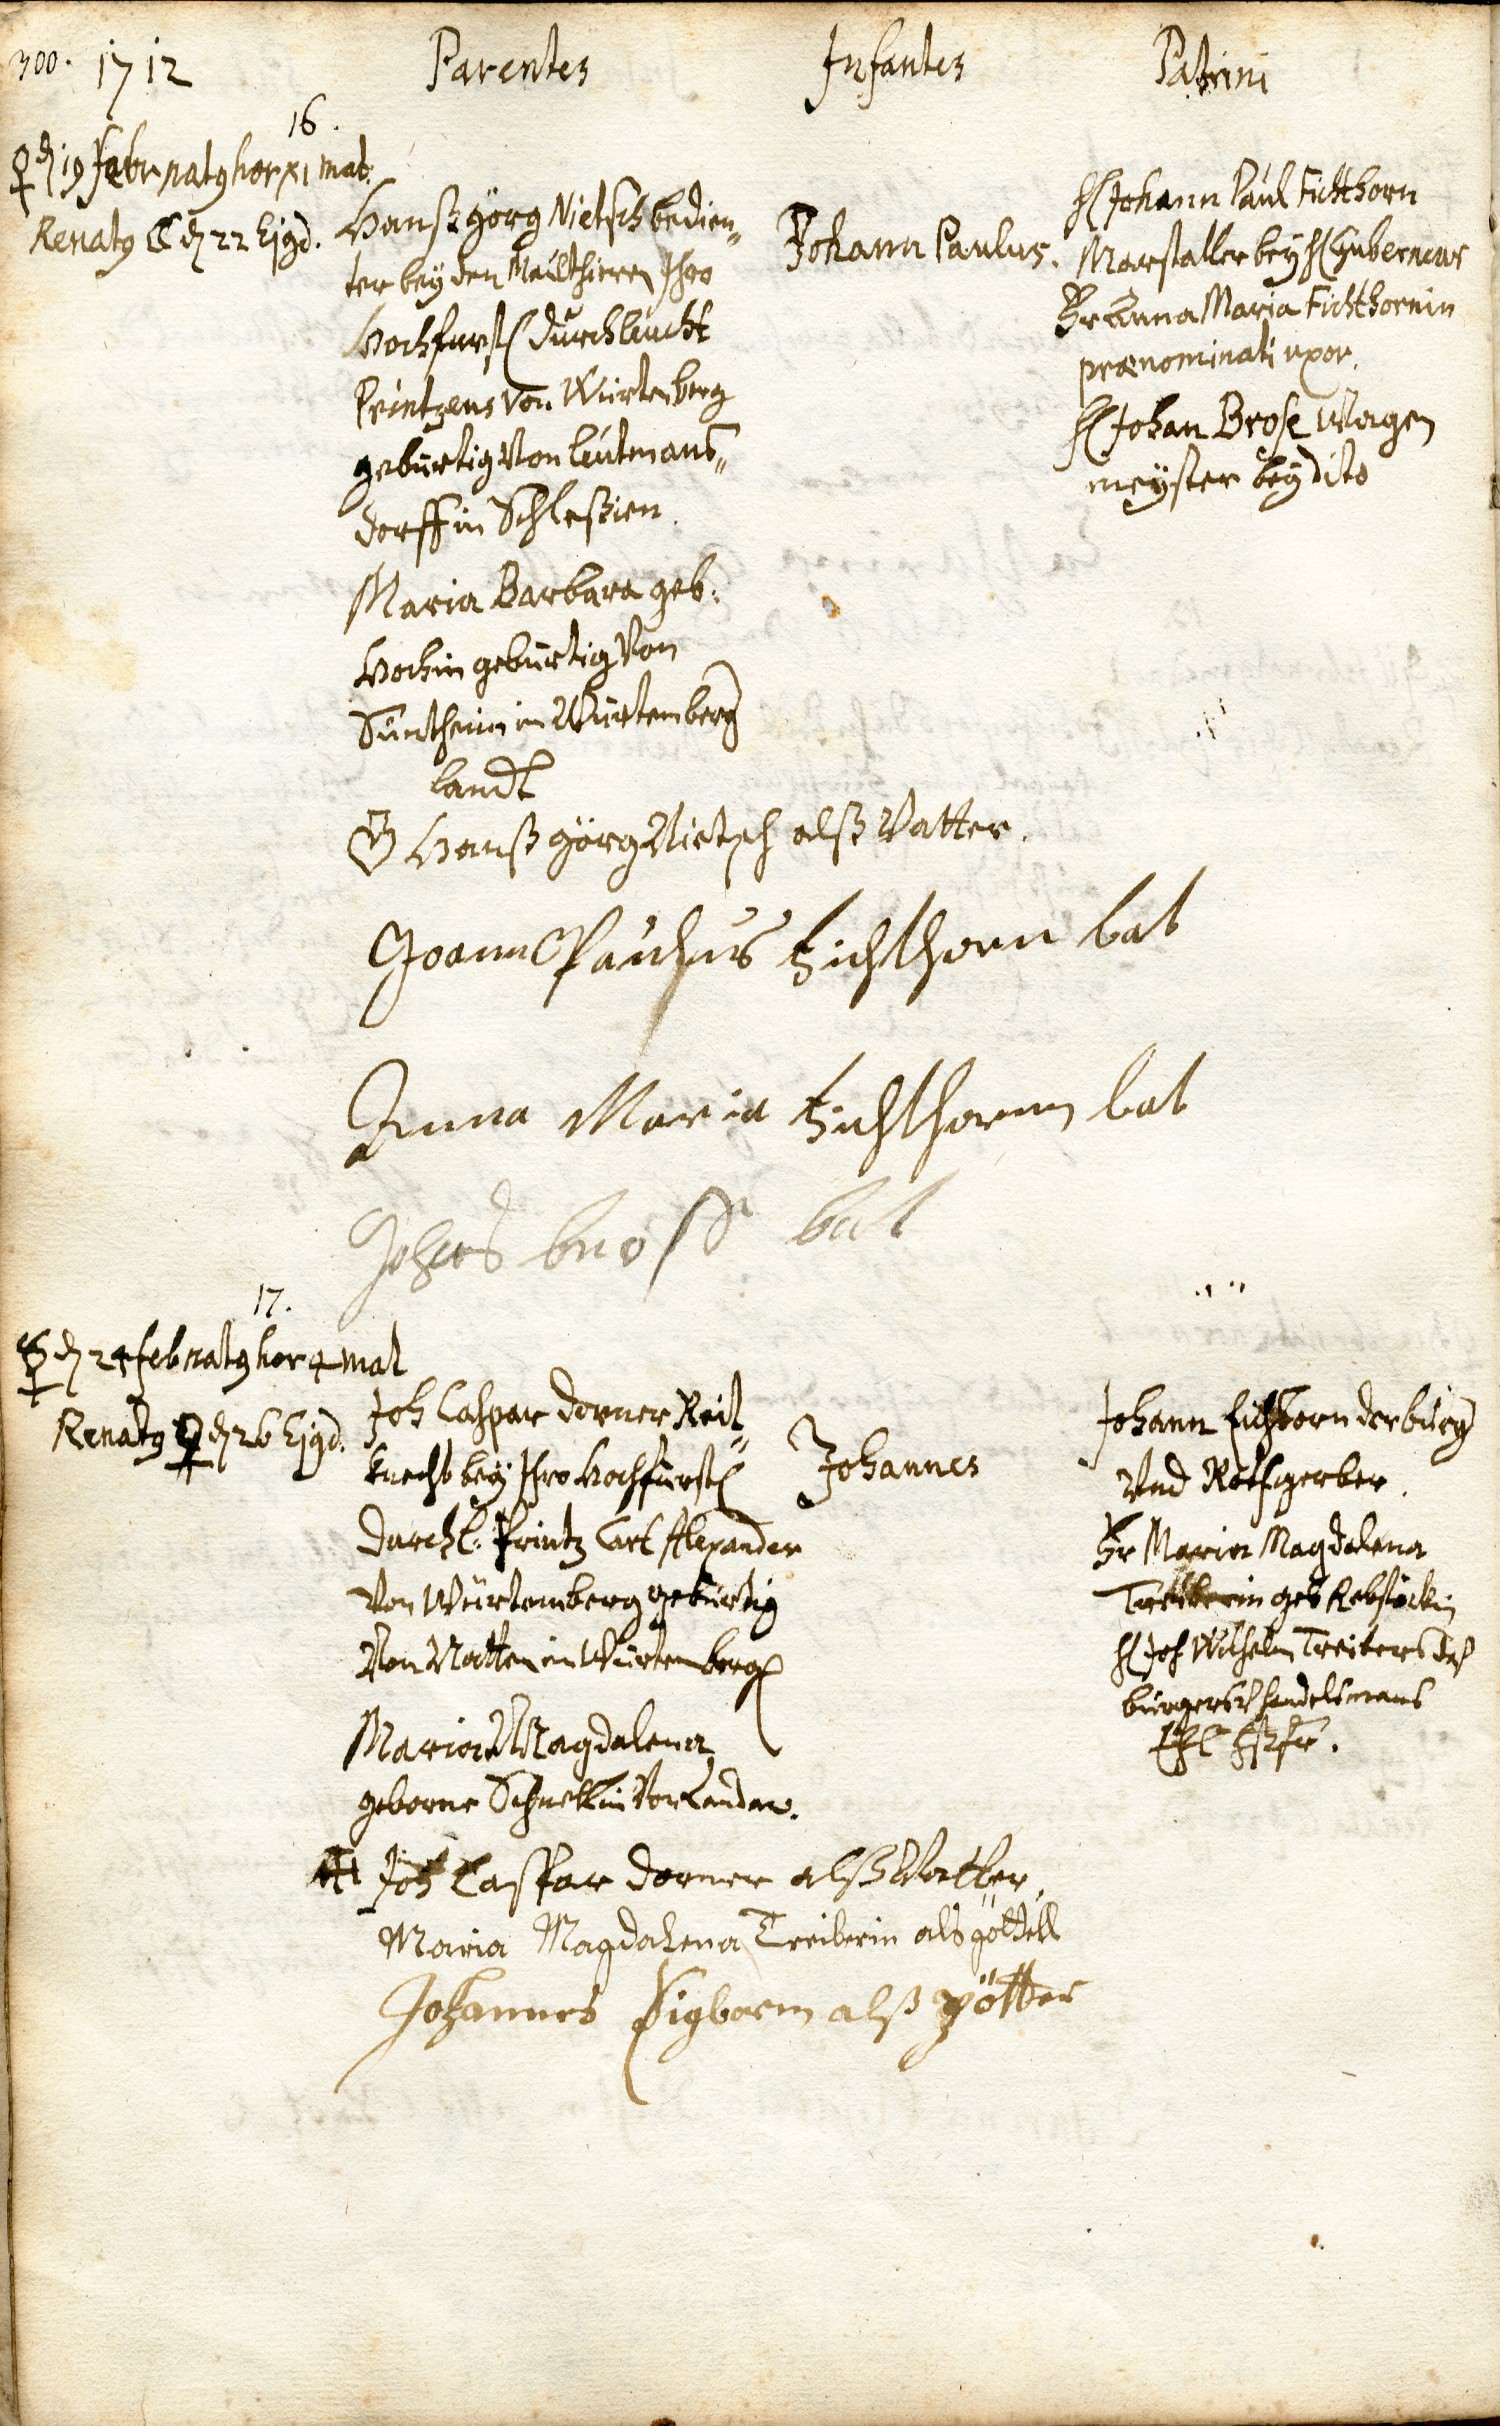 300. 1712 Parentes Infantes Patrini
16.
♀ d 19 Febr natq hor XI mat.
Renatq ☾ d 22 Ejqd.
Hanß Görg Nietsch bedien„
ter bey den Maulthieren Ihro
Hochfurstl durchleucht
Printzens von Würtenberg
gebürtig von Leutmans„
dorff in Schlesien.
Maria Barbara geb:
Hochin gebürtig von
Suntheim im Würtemberg
landt
Johann Paulus.
H Johann Paul Fichthorn
Marstaller bey H Guberneur
Fr Anna Maria Fichthornin
prænominati uxor.
H Johan Brose Wagen
meyster bey dito
Hanß Görg Nietsch alß Vatter.
Joann Paulus Fichthorn bat
Anna Maria Fichthornin bat
Johans bross bat
17.
☿ d 24 feb natq hor 4 mat
Renatq ♀ d 26 Ejqd.
Joh Caspar Dorner Reit„
knecht bey Ihro Hochfürstl
Durchl. Printz Carl Alexander
von Würtemberg gebürtig
von Natten im Würtemberg
Maria Magdalena
geborne Schnellin von Landau.
Johannes
Johann Eichhorn der burg
und Rothgerber.
Fr Maria Magdalena
Treiberin geb Rebstöckin
H Joh Wilhelm Treibers des
burgers V handelsmans
Joh Caspar Dorner alß Vatter.
Maria Magdalena Treiberin als göttell
Johannes Eigborn alß götter